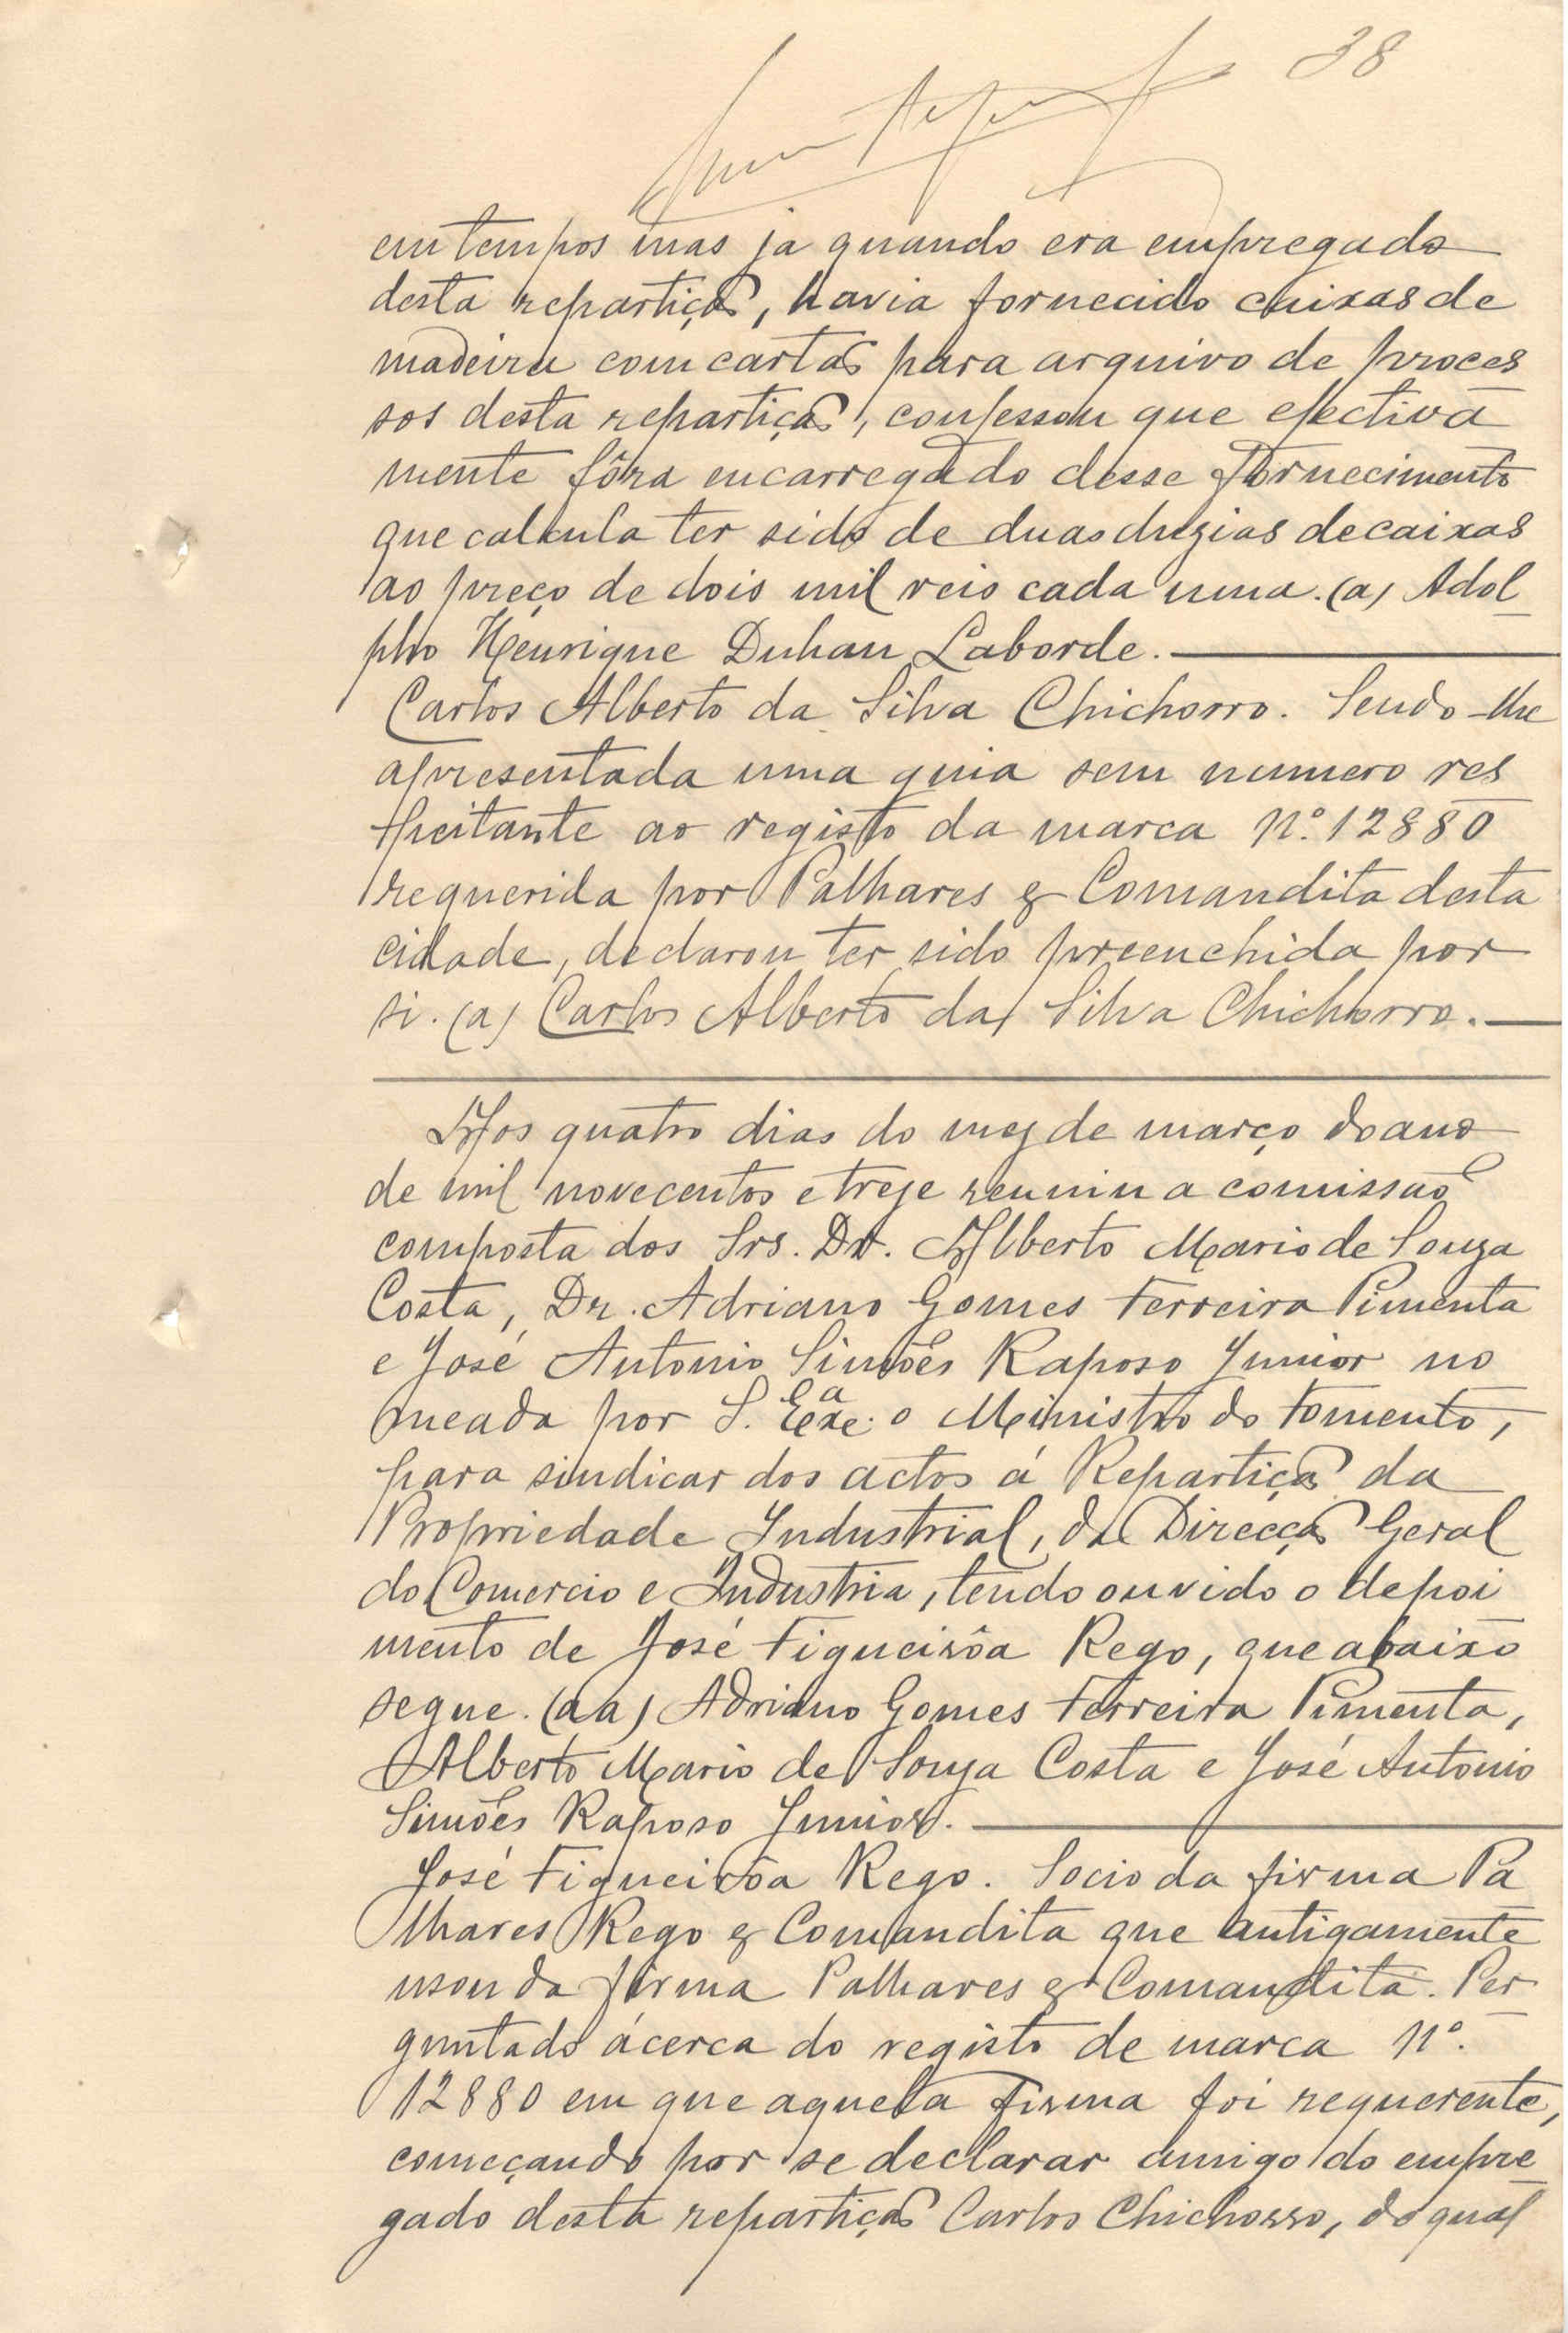 38
em tempos mas ja quando era empregado
desta repartição, havia fornecido caixas de
madeira com cartão para arquivo de proces
sos desta repartição, confessou que efectiva
mente fôra encarregado desse fornecimento
que calcula ter sido de duas duzias de caixas
ao preço de dois mil reis cada uma. (a) Adol
pho Henrique Duhan Laborde.
Carlos Alberto da Silva Chichorro. Sendo-lhe
apresentada uma guia sem numero res
peitante ao registo da marca Nº. 12880
requerida por Palhares & Comandita desta
cidade, declarou ter sido preenchida por
si. (a) Carlos Alberto da Silva Chichorro.
Aos quatro dias do mez de março do ano
de mil novecentos e treze reuniu a comissão
composta dos Srs. Dr. Alberto Mario de Souza
Costa, Dr. Adriano Gomes Ferreira Pimenta
e José Antonio Simões Raposo Junior no
meada por S. Exe.ª o Ministro do Fomento,
para sindicar dos actos á Repartição da
Propriedade Industrial, da Direcção Geral
do Comercio e Industria, tendo ouvido o depoi
mento de José Figueirôa Rego, que abaixo
segue. (aa) Adriano Gomes Ferreira Pimenta,
Alberto Mario de Souza Costa e José Antonio
Simões Raposo Junior.
José Figueirôa Rego. Socio da firma Pa
lhares Rego & Comandita que antigamente
usou da firma Palhares & Comandita. Per
guntado ácerca do registo de marca Nº.
12880 em que aquela firma foi requerente,
começando por se declarar amigo do empre
gado desta repartição Carlos Chichorro, do qual